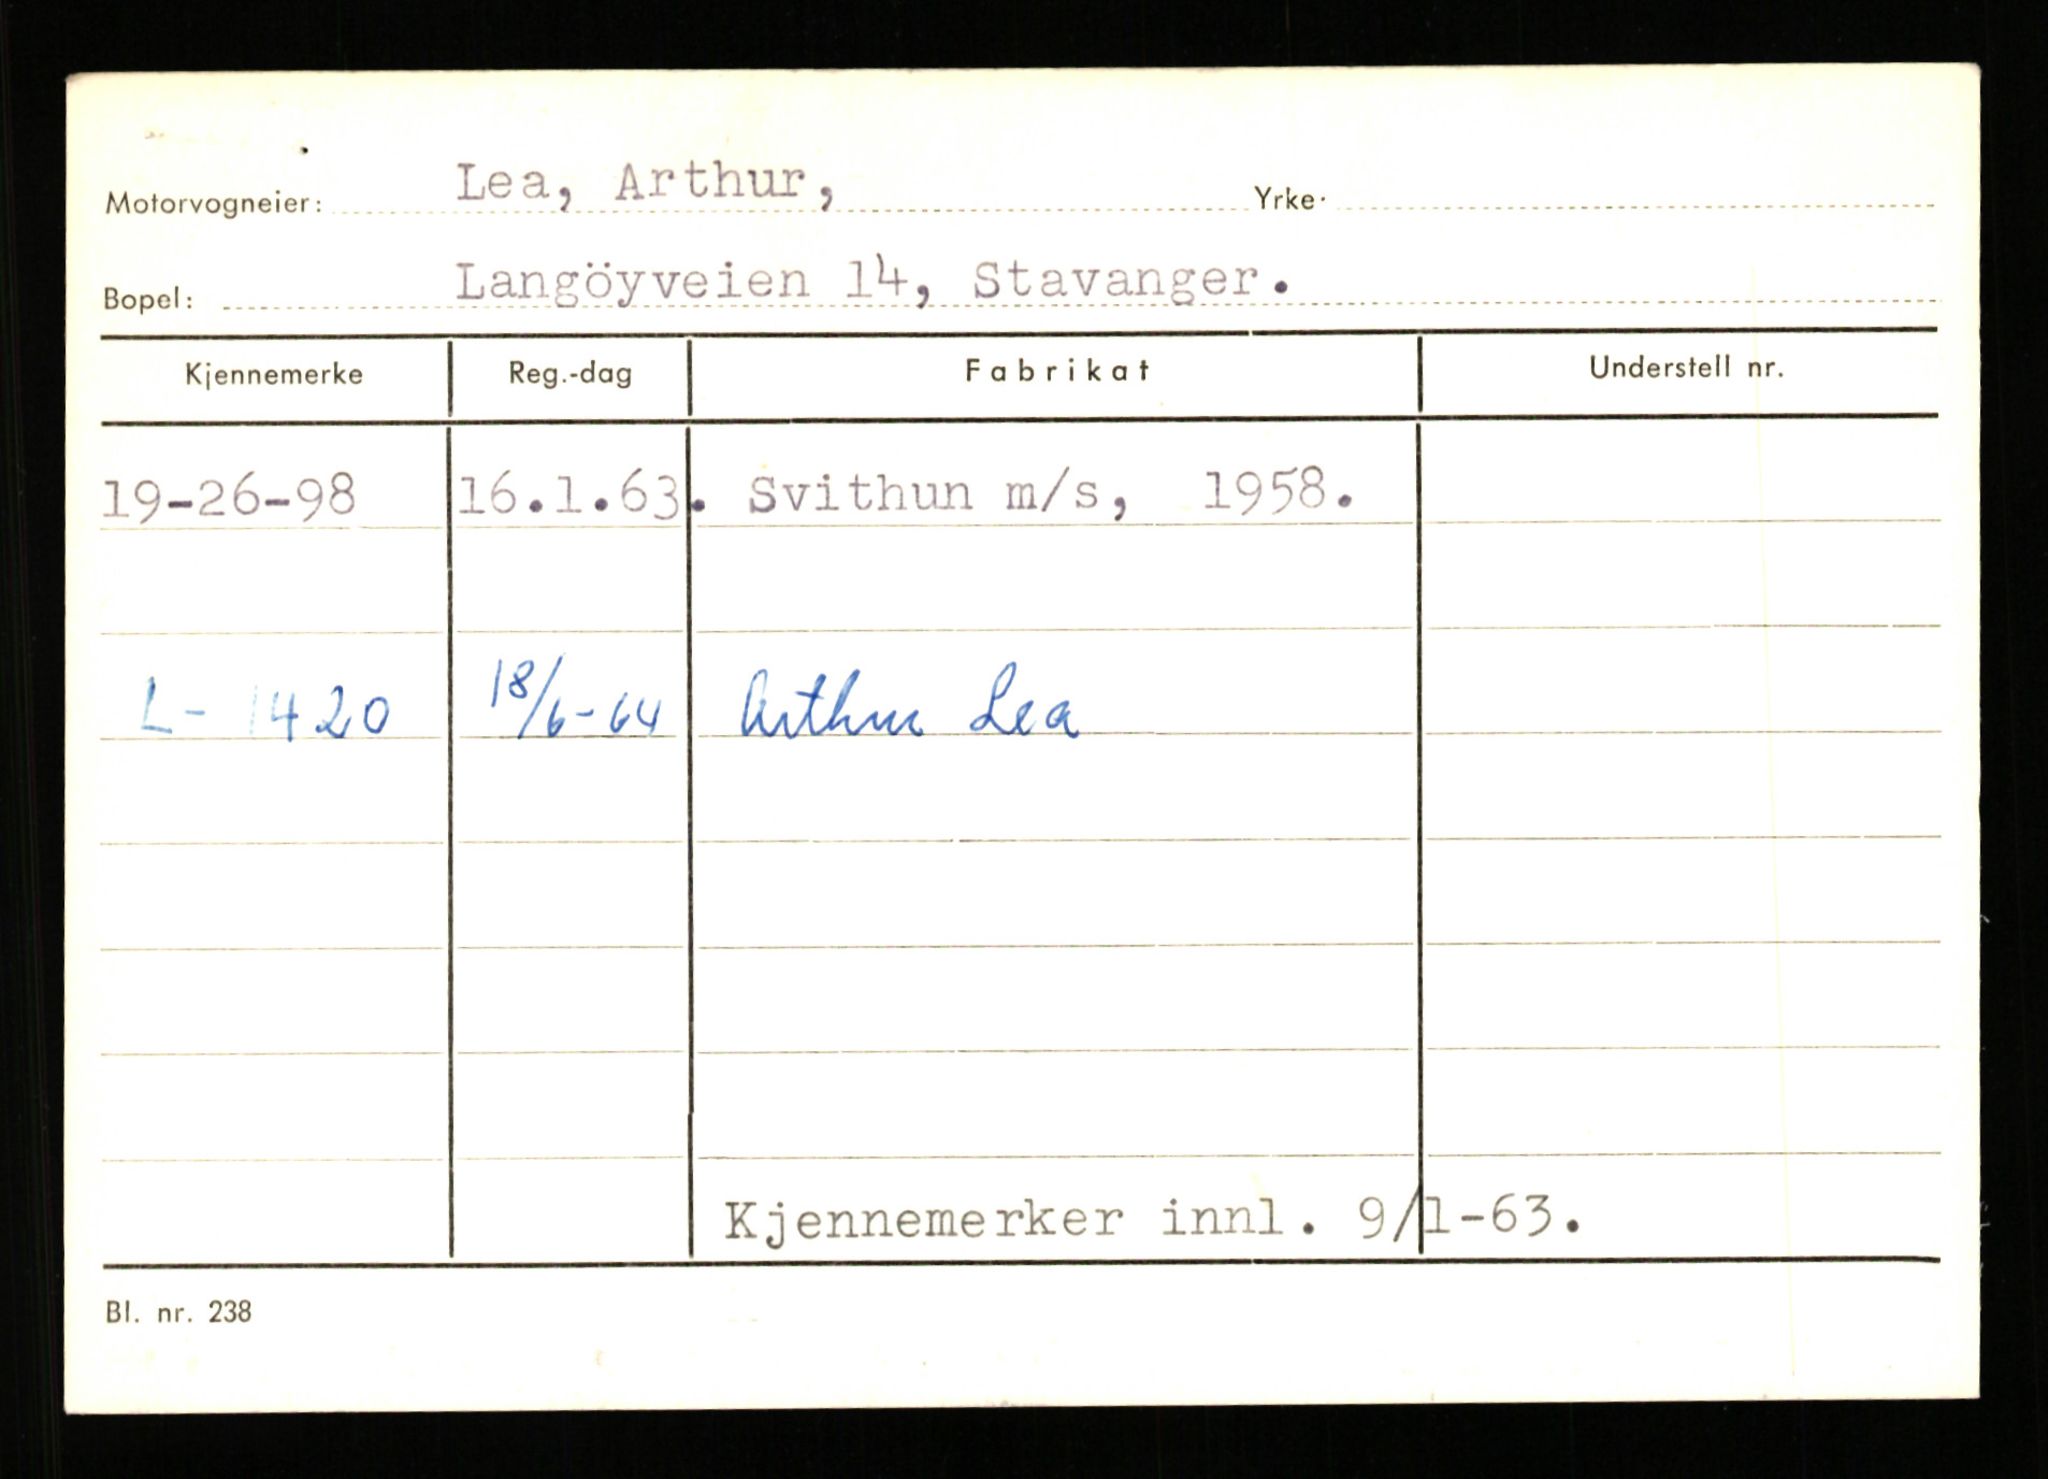 Motorvogneier: Lea, Arthur, Yrke.
Bopel: Langöyveien 14, Stavanger.
Kjennemerke Reg.-dag Fabrikat Understell nr.
19-26-98 16.1.63. Svithun m/s, 1958.
L- 1420 18/6-64 Arthur Lea
Kjennemerker innl. 9/1-63.
Bl. nr. 238